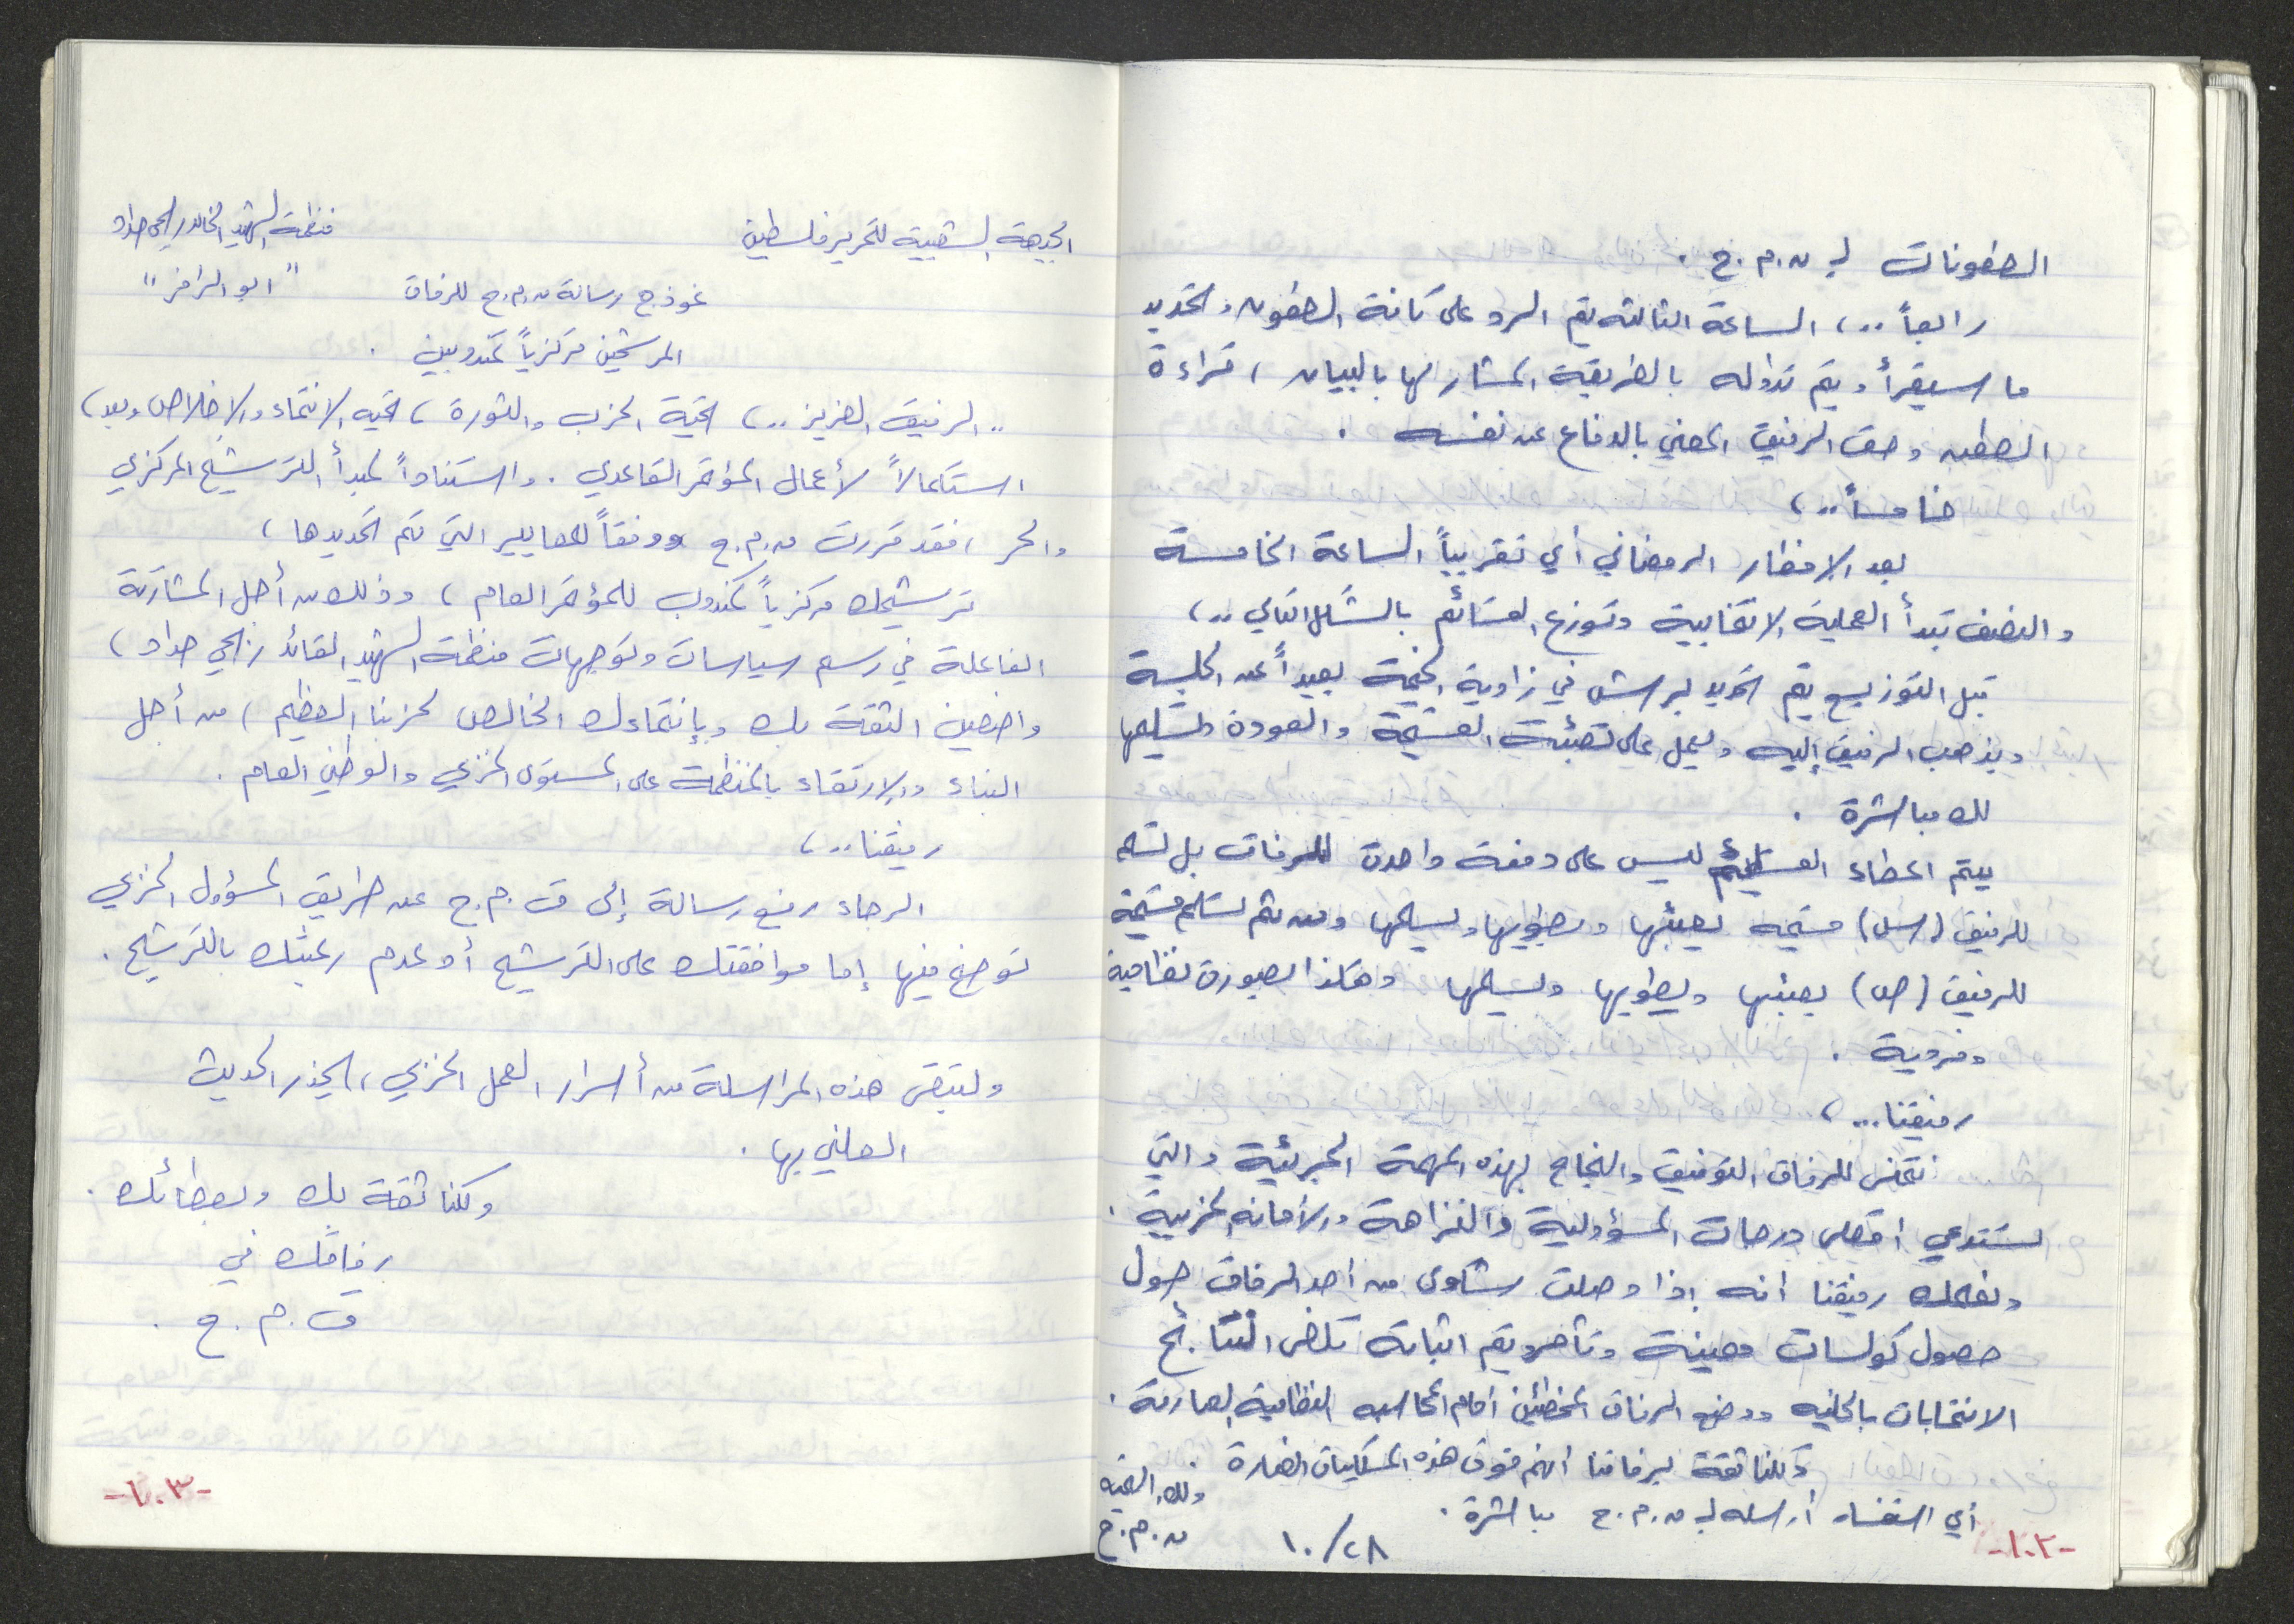 الطعونات لـ ن.م.ح .
رابعاً ..، الساعة الثالثة يتم الرد على كافة الطعون وتحديد
ما سيقرأ ويتم تداوله بالطريقة المشار لها بالبيان ، قراءة
الطعن وحق الرفيق المعني بالدفاع عن نفسه .
خامساً ..،
بعد الإفطار الرمضاني أي تقريباً الساعة الخامسة
والنصف تبدأ العملية الانتخابية وتوزع القسائم بالشكل التالي ..،
قبل التوزيع يتم تحديد برش في زاوية الخيمة بعيداً عن الجلسة
ويذهب الرفيق إليه ويعمل على تعبئة القسيمة والعودة لتسليمها
لك مباشرة .
يتم اعطاء القسائم ليس على دفعة واحدة للرفاق بل تسلم
للرفيق (س) قسيمه يعبئها ويطويها ويسلمها ومن ثم تسلم قسيمة
للرفيق (ص) يعبئها ويطويها ويسلمها وهكذا بصورة نظامية
وفردية .
رفيقنا ...،
نتمنى للرفاق التوفيق والنجاح بهذه المهمة الجريئة والتي
تستدعي اقصى درجات المسؤولية والنزاهة والأمانة الحزبية .
ونعلمك رفيقنا انه اذا وصلت شكوى من احد الرفاق حول
حصول كولسات معينة وتآمر ويتم اثباته تلغى النتائج
الانتخابات بالخليه ووضع الرفاق المخطئين امام المحاسبه النظامية الصارمة .
وكلنا ثقة برفاقنا انهم فوق هذه المسلكيات الضارة .
أي استفسار أرسله لـ ن.م.ح مباشرة .
ولك التحية
ن.م.ح
٢٨/١٠
-١٠٢-
الجبهة الشعبية لتحرير فلسطين
منظمة الشهيد الخالد ربحي حداد
"ابو الرامز"
نموذج رسالة ن.م.ح للرفاق
المرشحين مركزياً كمندوبين .
.. الرفيق العزيز ..، تحية الحزب والثورة ، تحيه الانتماء والاخلاص وبعد ،
استكمالاً لأعمال المؤتمر القاعدي . واستناداً لمبدأ الترشيح المركزي
والحر ، فقد قررت ن.م.ح ووفقاً للمعايير التي تم تحديدها ،
ترشيحك مركزياً كمندوب للمؤتمر العام ، وذلك من أجل المشاركة
الفاعلة في رسم سياسات وتوجهات منظمة الشهيد القائد ربحي حداد ،
واضعين الثقة بك وبإنتماءك الخالص لحزبنا العظيم ، من أجل
البناء والارتقاء بالمنظمة على المستوى الحزبي والوطني العام .
رفيقنا ..،
الرجاء رفع رسالة إلى ق.م.ح عن طريق المسؤول الحزبي
توضح فيها إما موافقتك على الترشيح أو عدم رغبتك بالترشيح .
ولتبقى هذه المراسلة من أسرار العمل الحزبي ، يحذر الحديث
العلني بها .
وكلنا ثقة بك وبعطائك .
رفاقك في
ق.م.ح .
-١٠٣-